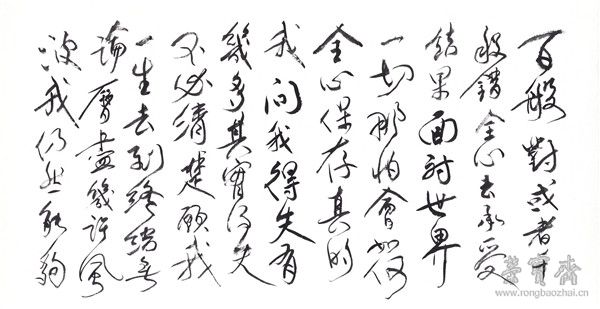 百般對或者千
般錯全心去承受
結果面對世界
一切那怕會如何
全心保存真的
我問我得失有
幾多其實得失
不必清楚願我
一生去到終結無
論歷盡幾許風
波我仍然能夠
榮寳齋
www.rongbaozhai.cn